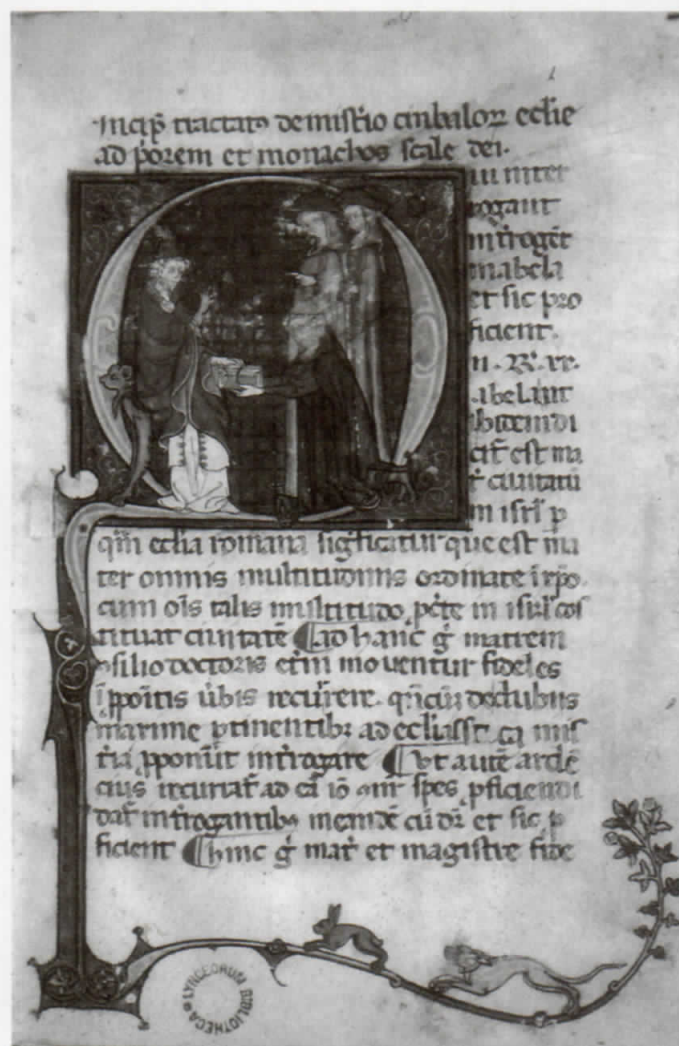 Incip̄ tractatꝰ de mistʼio cinbaloꝝ ecl̄ie
ad p̄orem et monachos scale dei.
ui inter
rogant
intʼrogēt
in abela
et sic pro
ficient.
.ii. Rͤ. xx.
abelant
ibidem di
citʼ est ma
tʼ ciuitatū
in isrl̄ p
qm̄ ecl̄ia romana significatur que est ma
ter omnis multitudinis ordinate ī xp̄o.
cum oīs talis multitudo
tituat ciuitatē ¶ ad hanc gͥ matrem
ꝯsilio doctoris etm̄ moventur fideles
recurrere. dubiis
maxime ꝑtinentibꝫ ad ecl̄ia mis
tʼia ꝓponūt intʼrogare ¶ Ut autē ardē
cius recurratʼ ad eā iō spes ꝓficiendi
datʼ intʼrogantibꝰ in eadē cū dr̄ et sic ꝓ
ficient ¶ hinc gͥ matʼ et magistre fide
LYNCEORUM BIBLIOTHECA